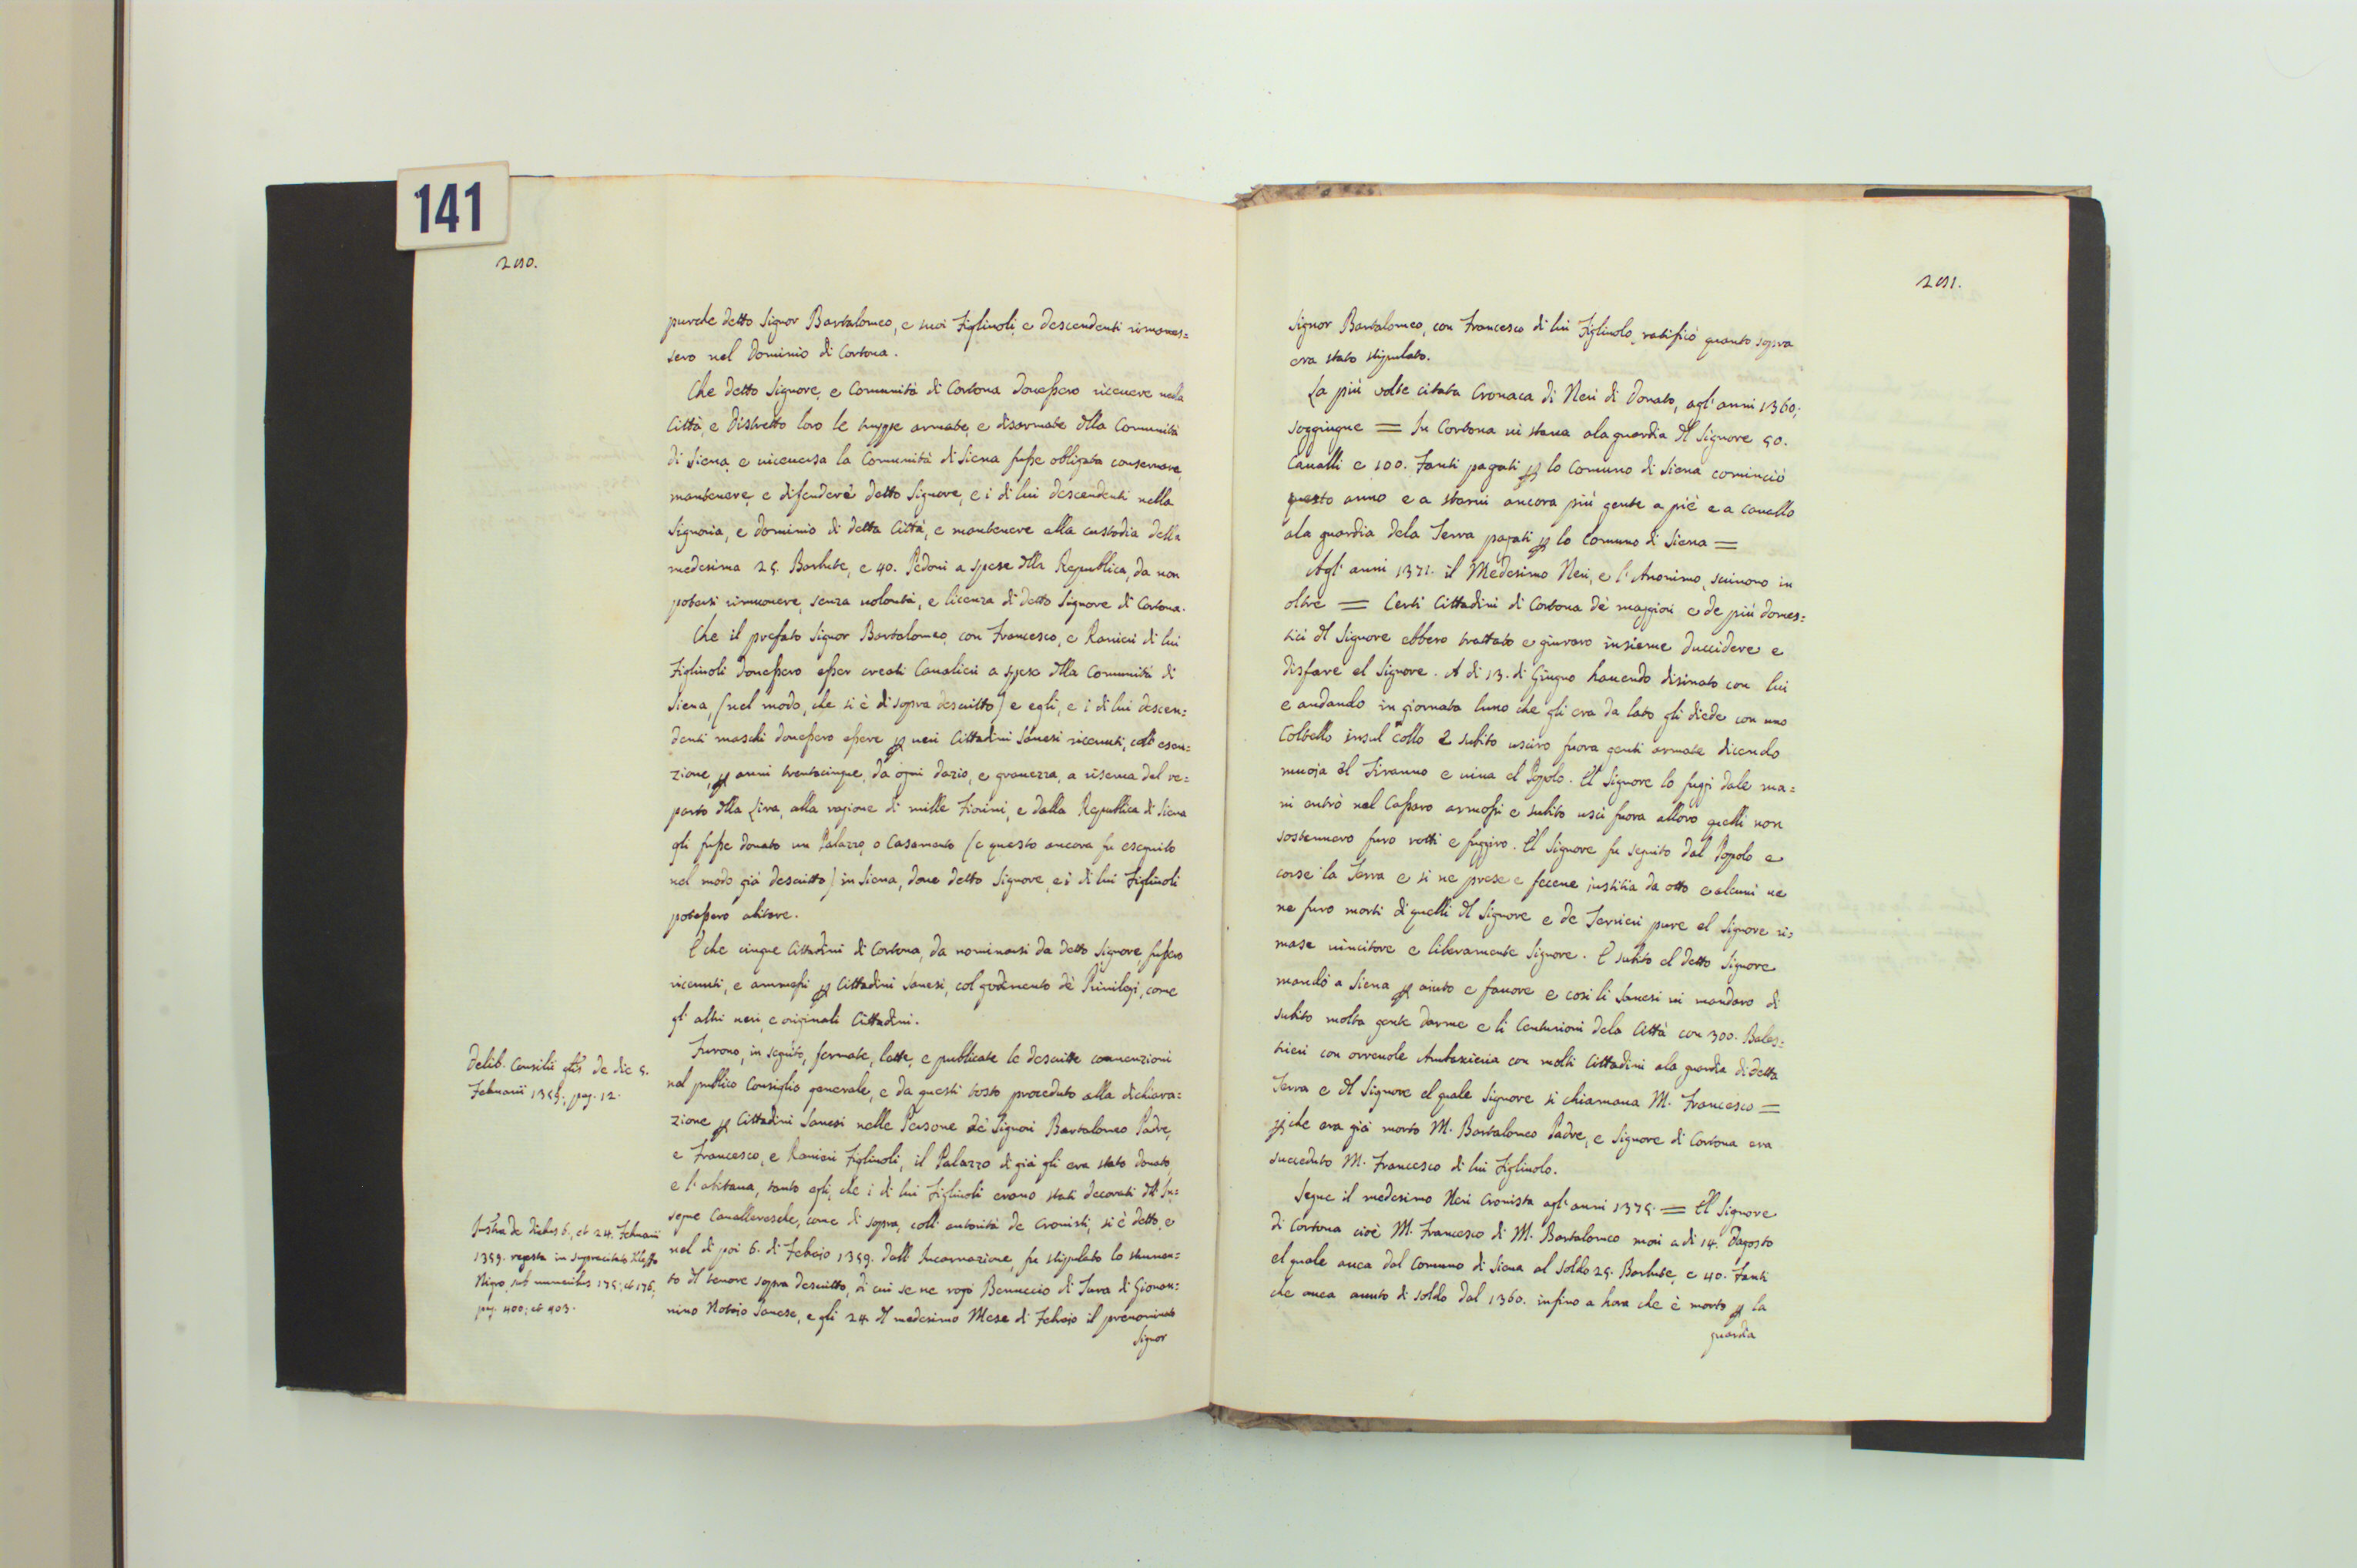 141
290.
purche detto Signor Bartalomeo, e suoi Figliuoli, e descendenti rimanes=
sero nel Dominio di Cortona.
Che detto Signore, e Comunità di Cortona douessero riceuere nella
Città, e Distretto loro le truppe armate, e disarmate della Comunità
di Siena, e uiceuersa la Comunità di Siena fusse obligata conseruare,
mantenere, e difendere detto Signore, e i di lui descendenti nella
Signoria, e dominio di detta Città, e mantenere alla custodia della
medesima 25. Barbute, e 40. Pedoni a spese della Republica, da non
potersi rimuouere, senza uolontà, e licenza di detto Signore di Cortona.
Che il prefato Signor Bartalomeo, con Francesco, e Ranieri di lui
Figliuoli douessero esser creati Caualieri a spese della Comunità di
Siena, (nel modo, che si è di sopra descritto) e egli, e i di lui descen=
denti maschi douessero essere per ueri Cittadini Sanesi riceuuti, coll'esen=
zione, per anni trentacinque, da ogni dazio, e grauezza, a riserua del re=
parto della Lira, alla ragione di mille Fiorini, e dalla Republica di Siena
gli fusse donato un Palazzo, o Casamento (e questo ancora fu eseguito
nel modo già descritto) in Siena, doue detto Signore, e i di lui Figliuoli
potessero abitare.
E che cinque Cittadini di Cortona, da nominarsi da detto Signore, fussero
riceuuti, e ammessi per Cittadini Sanesi, col godimento de' Priuilegi, come
gl'altri ueri, e originali Cittadini.
Delib. Consilii gñlis de die 5.
Februarii 1359. pag. 12.
Furono, in seguito, fermate, lette, e publicate le descritte conuenzioni
nel publico Consiglio generale, e da questi tosto proceduto alla dichiara=
zione per Cittadini Sanesi nelle Persone de' Signori Bartalomeo Padre,
e Francesco, e Ranieri Figliuoli, il Palazzo di già gli era stato donato,
e l'abitaua, tanto egli, che i di lui Figliuoli erano stati decorati dell'In=
segne Caualleresche, come di sopra, coll'autorità de Cronisti, si è detto, e
nel dì poi 6. di Febraio 1359. dall'Incarnazione, fu stipulato lo strumen=
to del tenore sopra descritto, di cui se ne rogò Bennuccio di Tura di Giouan=
nino Notaio Sanese, e gli 24 del medesimo Mese di Febraio il prenominato
Signor
Instr̃a de diebus 6., et 24. Februarii
1359. regesta in supracitato Kleffo
Nigro, sub numeribus 175., et 176.,
pag. 400., et 403.
291.
Signor Bartalomeo, con Francesco di lui Figliuolo, ratificò quanto sopra
era stato stipulato.
La più volte citata Cronaca di Neri di Donato, agl'anni 1360;
soggiugne = In Cortona ui staua ala guardia del Signore 50.
Caualli e 100. Fanti pagati per lo Comuno di Siena cominciò
questo anno e a starui ancora più gente a piè e a cauallo
ala guardia dela Terra pagati per lo Comuno di Siena =
Agl'anni 1371. il Medesimo Neri, e l'Anonimo, scriuono in
oltre = Certi Cittadini di Cortona de' maggiori e de più domes=
tici del Signore ebbero trattato e giuraro insieme duccidere e
disfare el Signore. A di 13. di Giugno hauendo disinato con lui
e andando in giornata luno che gli era da lato gli diede con uno
Coltello insul collo e subito usciro fuora genti armate dicendo
muoja el Tiranno e uiua el Popolo. El Signore lo fuggi dale ma=
ni entrò nel Cassaro armossi e subito usci fuora alloro quelli non
sostennero furo rotti e fuggiro. El Signore fu seguito dal Popolo e
corse la Terra e si ne prese e fecene justitia da otto e alcuni ne
ne furo morti di quelli del Signore e de Terrieri pure el Signore ri=
mase uincitore e liberamente Signore. E subito el detto Signore
mandò a Siena per aiuto e fauore e cosi li Sanesi ui mandaro di
subito molta gente darme e li Centurioni dela Città con 300. Bales=
trieri con orreuole Ambasciaria con molti Cittadini ala guardia di detta
Terra e del Signore el quale Signore si chiamaua M. Francesco =
perche era già morto M. Bartalomeo Padre, e Signore di Cortona era
succeduto M. Francesco di lui Figliuolo.
Segue il medesimo Neri Cronista agl'anni 1375. = El Signore
di Cortona cioè M. Francesco di M. Bartalomeo morì a di 14. Dagosto
el quale auea dal Comuno di Siena al soldo 25. Barbute, e 40. Fanti
che auea auuto di soldo dal 1360. infino a hora che è morto per la
guardia